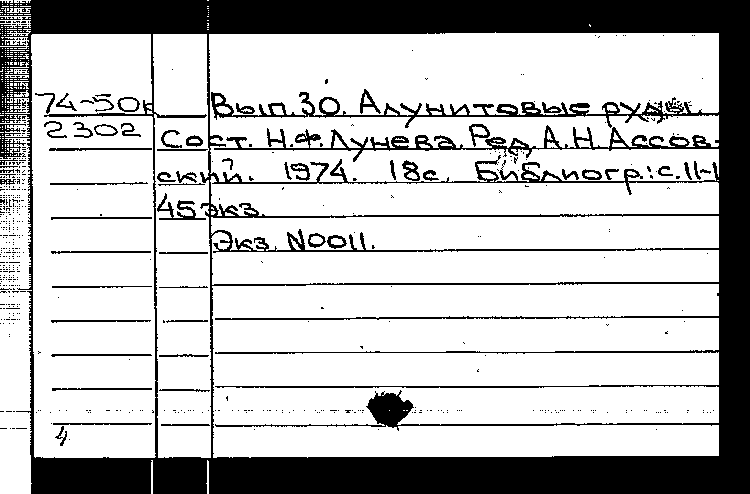 74-50к Вып.30. Алунитовые руды.
2302 Сост. Н.Ф.Лунева. Ред. А.Н. Ассов-
ский. 1974. 18с. Библиогр.: с.11-1
45экз.
Экз. N0011.
4